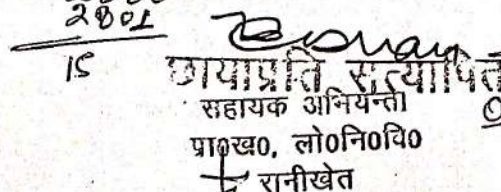 2801
15
छायाप्रति सत्यापित
सहायक अभियन्ता
प्रा०ख०, लो०नि०वि०
रानीखेत